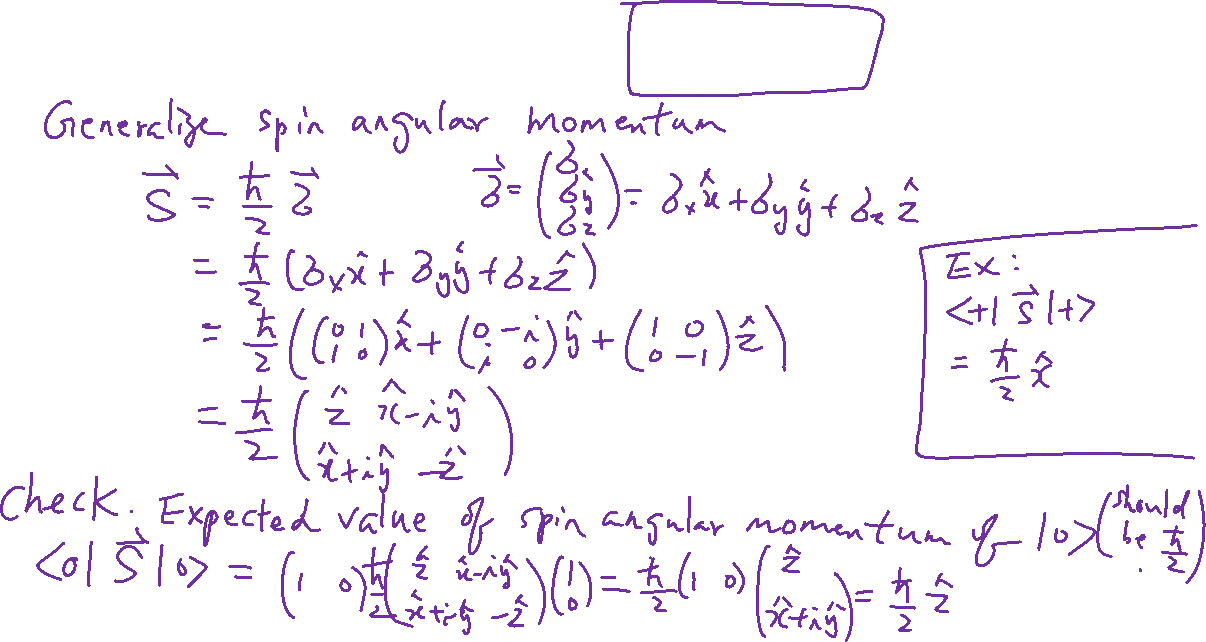 Generalize spin angular momentum
$\vec{S} = \frac{\hbar}{2} \vec{\sigma}$ $\vec{\sigma} = \begin{pmatrix} \sigma_x \\ \sigma_y \\ \sigma_z \end{pmatrix} = \sigma_x \hat{x} + \sigma_y \hat{y} + \sigma_z \hat{z}$
$= \frac{\hbar}{2} (\sigma_x \hat{x} + \sigma_y \hat{y} + \sigma_z \hat{z})$
$= \frac{\hbar}{2} \left( \begin{pmatrix} 0 & 1 \\ 1 & 0 \end{pmatrix} \hat{x} + \begin{pmatrix} 0 & -i \\ i & 0 \end{pmatrix} \hat{y} + \begin{pmatrix} 1 & 0 \\ 0 & -1 \end{pmatrix} \hat{z} \right)$
$= \frac{\hbar}{2} \begin{pmatrix} \hat{z} & \hat{x} - i\hat{y} \\ \hat{x} + i\hat{y} & -\hat{z} \end{pmatrix}$
Ex:
$\langle + | \vec{S} | + \rangle$
$= \frac{\hbar}{2} \hat{x}$
Check. Expected value of spin angular momentum of $|0\rangle$ (should be $\frac{\hbar}{2}$)
$\langle 0 | \vec{S} | 0 \rangle = (1 \quad 0) \frac{\hbar}{2} \begin{pmatrix} \hat{z} & \hat{x} - i\hat{y} \\ \hat{x} + i\hat{y} & -\hat{z} \end{pmatrix} \begin{pmatrix} 1 \\ 0 \end{pmatrix} = \frac{\hbar}{2} (1 \quad 0) \begin{pmatrix} \hat{z} \\ \hat{x} + i\hat{y} \end{pmatrix} = \frac{\hbar}{2} \hat{z}$